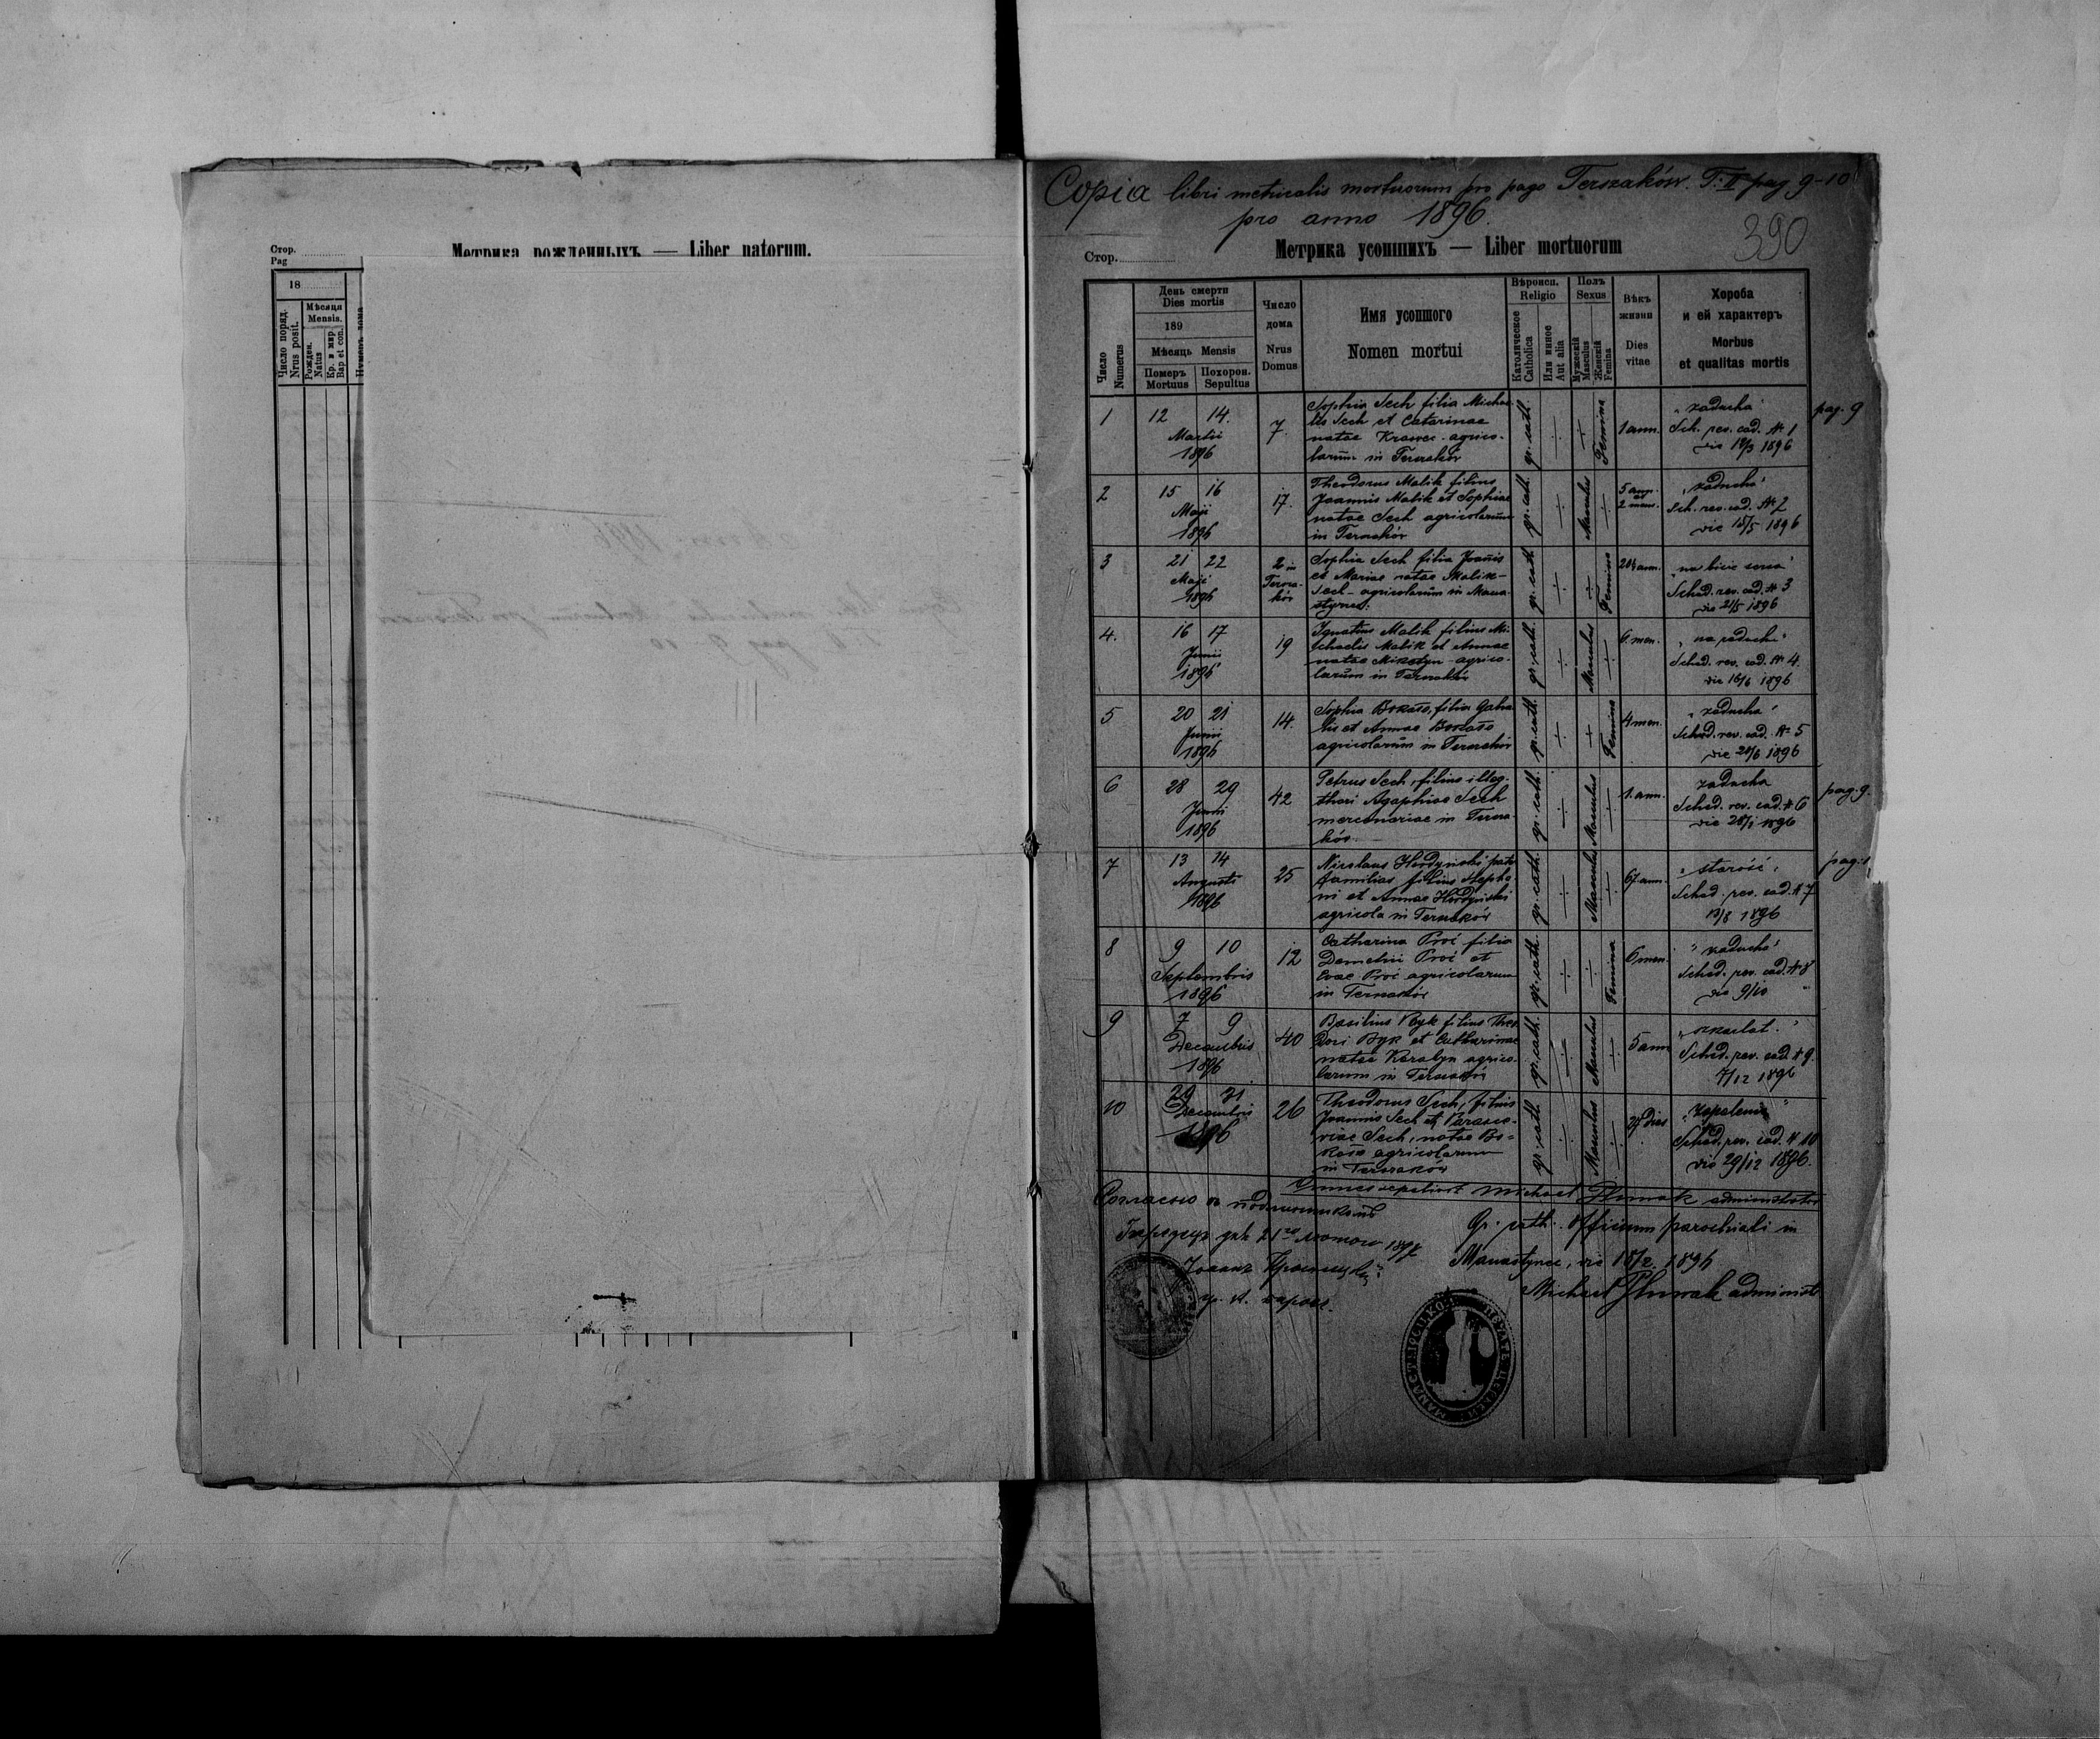 Стор.
Pag
Метрика рожденныхъ — Liber natorum.
18
Число поряд.
Nrus posit.
Мѣсяця
Mensis.
Рожден.
Natus
Кр. и мир
Bap et con.
Copia libri metricalis mortuorum pro pago Terszaków. T: II pag 9-10
pro anno 1896.
390
Стор.
Метрика усопшихъ — Liber mortuorum
Число
Numerus
День смерти
Dies mortis
189
Мѣсяць Mensis
Померъ
Mortuus
Похорон.
Sepultus
Число
дома
Nrus
Domus
Имя усопшого
Nomen mortui
Вѣроисп.
Religio
Католическое
Catholica
Или иное
Aut alia
Полъ
Sexus
Мужескій
Masculus
Женскій
Femina
Вѣкъ
жизни
Dies
vitae
Хороба
и ей характеръ
Morbus
et qualitas mortis
1
12 14.
Martii
1896
7.
Sophia Sech filia Michae-
lis Sech et Catarinae
natae Krawec agrico-
larum in Terszaków
gr. cath.
Femina
1 ann.
"zaducha"
Sch. rev. cad. N 1
die 12/3 1896
pag. 9
2
15 16
Maji
1896
17.
Theodorus Malik filius
Joannis Malik et Sophiae
natae Sech agricolarum
in Terszaków
gr. cath.
Masculus
5 ann.
2 mens.
"zaducha"
Sch. rev. cad. N 2
die 15/5 1896
3
21 22
Maji
1896
2 in
Tersza-
ków
Sophia Sech filia Joannis
et Mariae natae Malik-
Sech - agricolarum in Mana-
styrec.
gr. cath.
Femina
"na bicie serca"
Sched. rev. cad. N 3
die 21/5 1896
4.
16 17
Junii
1896
19
Ignatius Malik filius Mi-
chaelis Malik et Annae
natae Mikityn - agrico-
larum in Terszaków
gr. cath.
Masculus
6 men.
"na zaduchi"
Sched. rev. cad. N 4.
die 16/6 1896
5
20 21
Junii
1896
14.
Sophia Bokało, filia Gabrie-
lis et Annae Bokało
agricolarum in Terszaków
gr. cath.
Femina
4 men.
"zaducha"
Sched. rev. cad. N 5
die 20/6 1896
6
28 29
Junii
1896
42
Petrus Sech, filius illeg.
thori Agaphiae Sech
mercenariae in Tersza-
ków.
gr. cath.
Masculus
1. ann.
zaducha
Sched. rev. cad. N 6
die 28/6 1896
pag. 9.
7
13 14
Augusti
1896
25
Nicolaus Hordyński pater
familias filius Stepha-
ni et Annae Hordyński
agricola in Terszaków
gr. cath.
Masculus
67 ann.
"starość"
Sched. rev. cad. N 7
13/8 1896
8
9 10
Septembris
1896
12
Catharina Proć filia
Demetrii Proć et
Evae Proć agricolarum
in Terszaków
gr. cath.
Femina
6 men.
"zaducha"
Sched. rev. cad. N 8
die 9/10
9
7 9
Decembris
1896
40
Basilius Byk filius Theo-
dori Byk et Catharinae
natae Karabyn agrico-
larum in Terszaków
gr. cath.
Masculus
5 ann
"szkarlat."
Sched. rev. cad. N 9.
7/12 1896
10
29 31
Decembris
1896
26
Theodorus Sech, filius
Joannis Sech et Parasce-
viae Sech, natae Bo-
kało agricolarum
in Terszaków
gr. cath
Masculus
dies
"Zapalenie"
Sched. rev. cad. N 10
die 29/12 1896.
Omnes sepelivit Michael administrator
Согласно
Gr. cath. officium parochiale in
дня 21го лютого 1897
Manastyrec, die 18/2. 1896
Іоаннъ
Michael administ